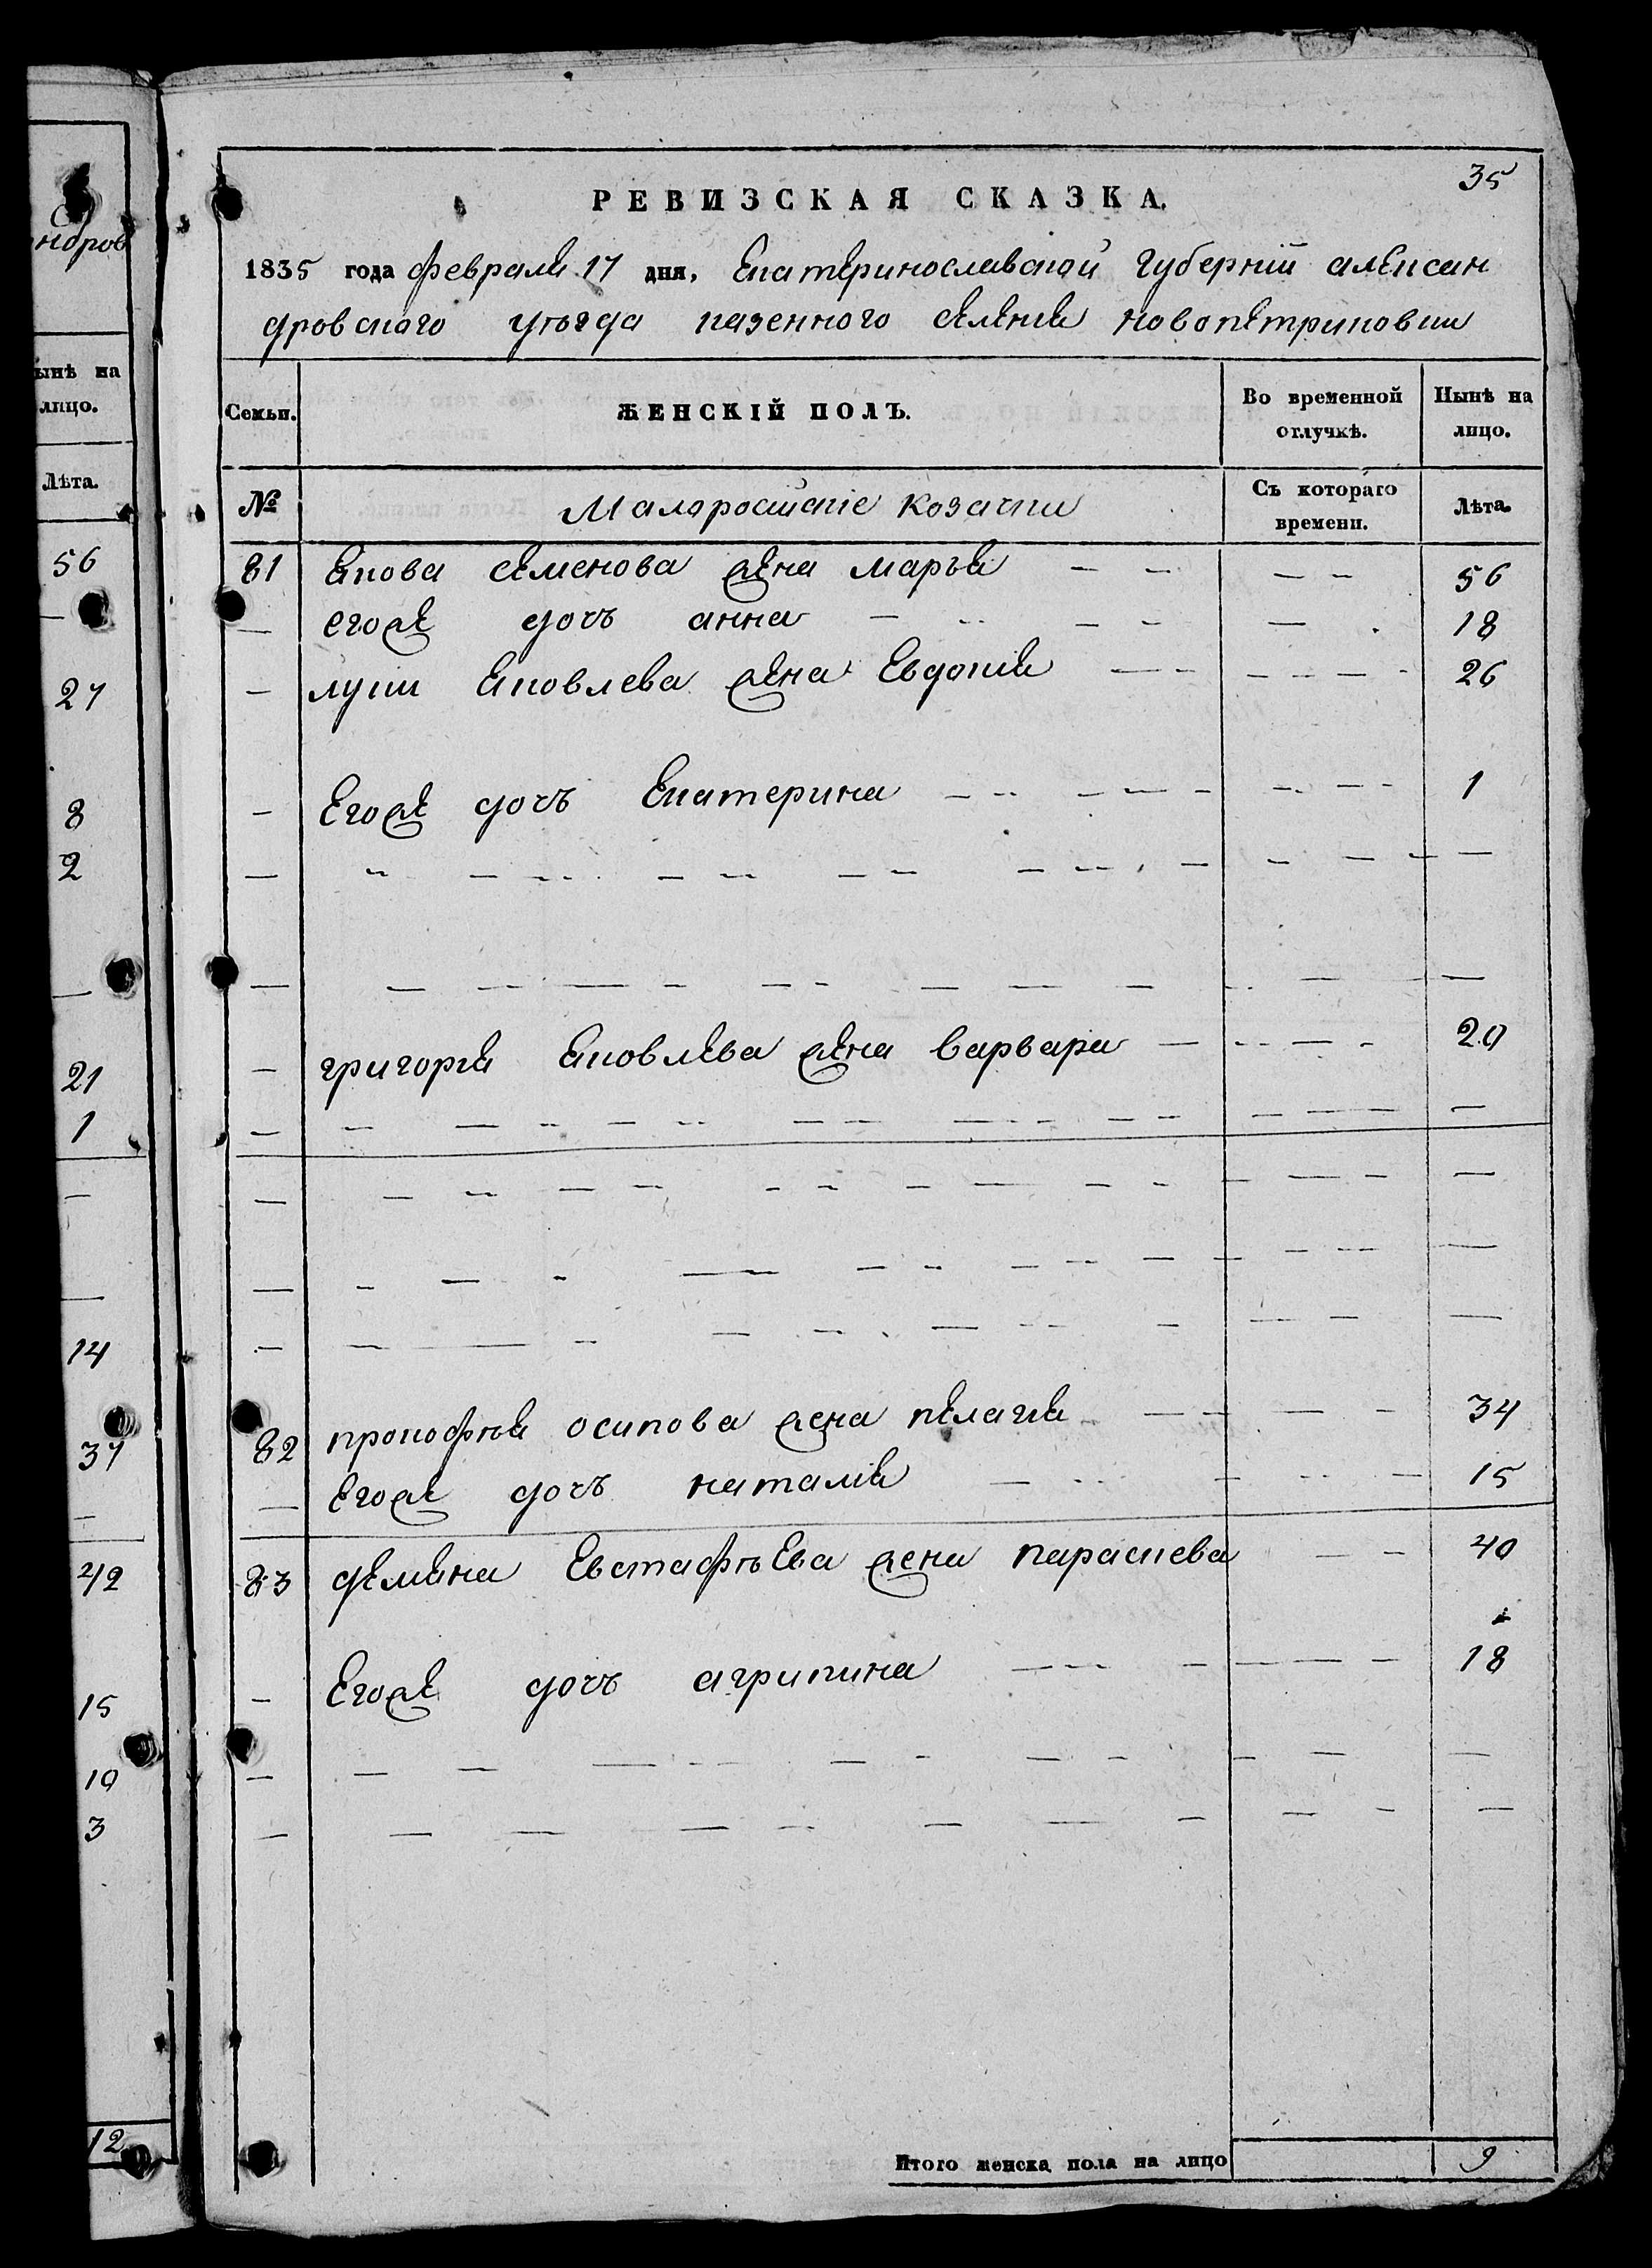 ндров
ынѣ на
лицо.
Лѣта.
56
—
27
8
2
—
21
1
—
—
14
37
—
42
15
10
3
12
35
РЕВИЗСКАЯ СКАЗКА.
1835 года февраля 17 дня, Екатеринославской губернїи алексан
дровского уѣзда казенного селения новопетриковки
Семьи. ЖЕНСКІЙ ПОЛЪ. Во временной отлучкѣ. Нынѣ на лицо.
№ Малоросийские козачки Съ котораго времени. Лѣта.
81 якова семенова жена марья — — — — 56
— егоже дочъ анна — — — — — 18
— луки яковлева жена Евдокия — — — — — 26
— Егоже дочъ Екатерина — — — — — 1
— — — — — — — —
— — — — — — — —
— григория яковлева жена варвара — — — — 20
— — — — — — — —
— — — — — — — —
— — — — — — — —
— — — — — — — —
82 прокофия осипова жена пелагия — — — — 34
— Егоже дочъ наталия — — — — 15
83 демяна Евстафьева жена параскева — — 40
— Егоже дочъ агрипина — — — — 18
— — — — — — — —
— — — — — — — —
Итого женска пола на лицо 9